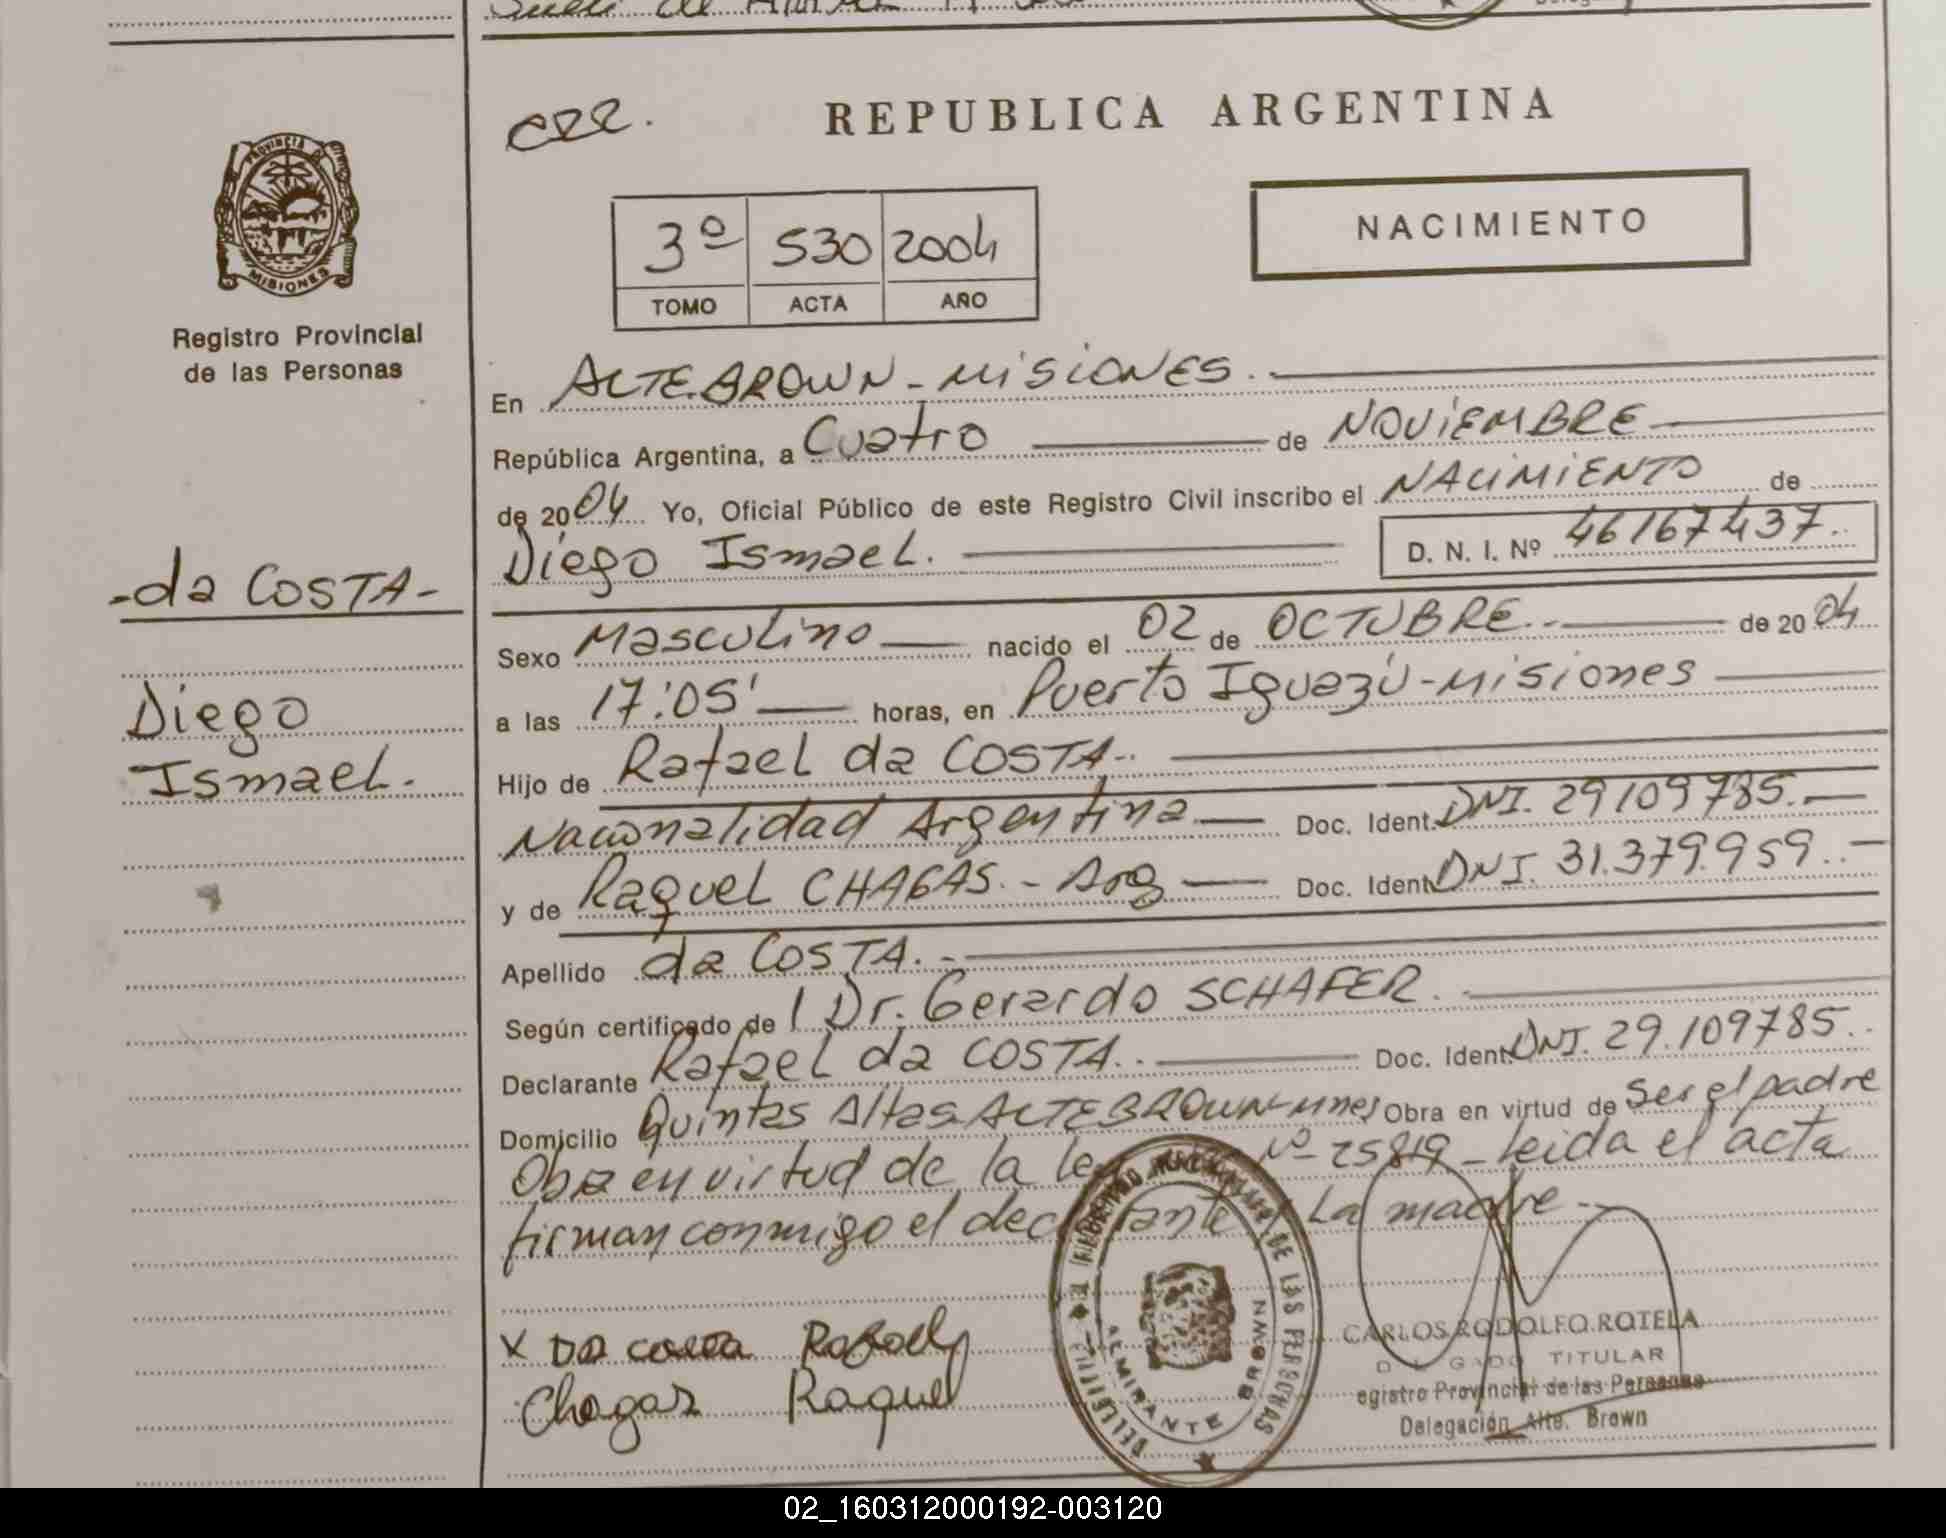 czz.
REPUBLICA ARGENTINA
PROVINCIA DE
MISIONES
Registro Provincial
de las Personas
3º 530 2004
TOMO ACTA AÑO
NACIMIENTO
En ALTE.BROWN - MISIONES.
República Argentina, a Cuatro de NOVIEMBRE
de 2004 Yo, Oficial Público de este Registro Civil inscribo el NACIMIENTO de
Diego Ismael. D. N. I. Nº 46167437.
-da COSTA-
Diego
Ismael.
Sexo Masculino nacido el 02 de OCTUBRE. de 2004
a las 17:05' horas, en Puerto Iguazú - Misiones
Hijo de Rafael da COSTA.
Nacionalidad Argentina Doc. Ident. DNI. 29109785.
y de Raquel CHAGAS. - Arg Doc. Ident. DNI. 31.379.959.
Apellido da COSTA. -
Según certificado de l Dr. Gerardo SCHAFER.
Declarante Rafael da COSTA. Doc. Ident. DNI. 29.109785.
Domicilio Quintas Altas ALTE BROWN - Mnes Obra en virtud de Ser el padre
Obra en virtud de la ley Nº 25819 - leida el acta
firman conmigo el declarante y La madre -
X Da costa Rafael
Chagas Raquel
DE LAS PERSONAS
ALMIRANTE BROWN
CARLOS RODOLFO ROTELA
TITULAR
egistro Provincial de las Personas
Delegación Alte. Brown
02_160312000192-003120